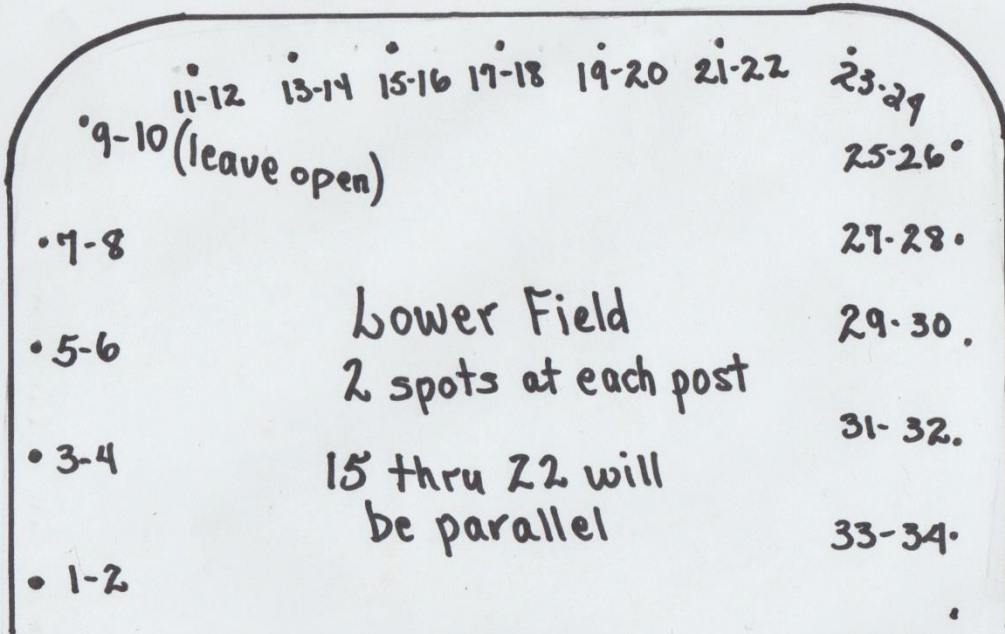 11-12 13-14 15-16 17-18 19-20 21-22 23-24
9-10 (leave open)
25-26
7-8
27-28
Lower Field
29-30
5-6
2 spots at each post
31-32
3-4
15 thru 22 will
be parallel
33-34
1-2